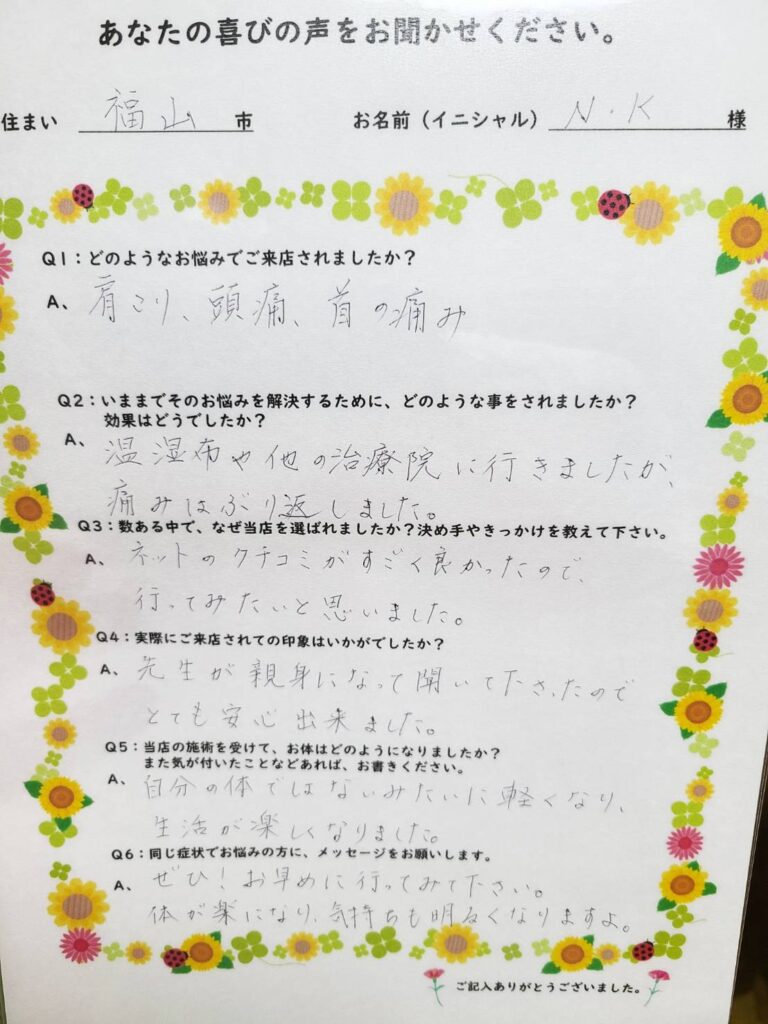 あなたの喜びの声をお聞かせください。
住まい 福山 市 お名前（イニシャル） N・K 様
Q1：どのようなお悩みでご来店されましたか？
A、肩こり、頭痛、首の痛み
Q2：いままでそのお悩みを解決するために、どのような事をされましたか？
効果はどうでしたか？
A、温湿布や他の治療院に行きましたが、
痛みはぶり返しました。
Q3：数ある中で、なぜ当店を選ばれましたか？決め手やきっかけを教えて下さい。
A、ネットのクチコミがすごく良かったので、
行ってみたいと思いました。
Q4：実際にご来店されての印象はいかがでしたか？
A、先生が親身になって聞いて下さったので
とても安心出来ました。
Q5：当店の施術を受けて、お体はどのようになりましたか？
また気が付いたことなどあれば、お書きください。
A、自分の体ではないみたいに軽くなり、
生活が楽しくなりました。
Q6：同じ症状でお悩みの方に、メッセージをお願いします。
A、ぜひ！お早めに行ってみて下さい。
体が楽になり、気持ちも明るくなりますよ。
ご記入ありがとうございました。